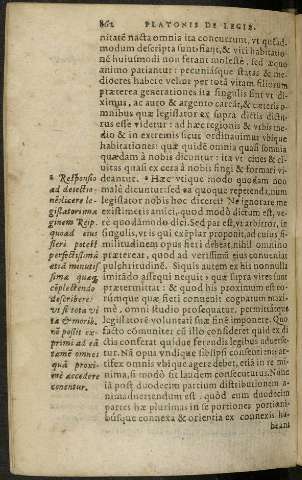 862 PLATONIS DE LEGIB.
nitatē nacta omnia ita concurrunt, vt quēad-
modum descripta sunt fiant, & viri habitatio-
nē huiusmodi non ferant molestè, sed æquo
animo patiantur: pecuniásque statas & me-
diocres habere velint per totā vitam filiorum
præterea generationes ita singulis sint vt di-
ximus, ac auro & argento careāt, & cæteris o-
mnibus quæ legislator ex supra dictis dictu-
rus esse videtur: ad hæc regionis & vrbis me-
dio & in extremis sicut ordinauimus vbique
habitationes: quæ quidē omnia quasi somnia
quædam à nobis dicuntur: ita vt ciues & ci-
uitas quasi ex cera à nobis fingi & formari vi-
deantur. Hæc vtique modo quodam non
malè dicūtur: sed ea quoque repetenda, num
legislator nobis hoc dicteri? Ne ignorare me
existimetis amici, quod modò dictum est, ve-
rè quodāmodo dici. Sed par est, vt arbitror, in
singulis, vt is qui exēplar proponit, ad cuius si-
militudinem opus fieri debeat, nihil omnino
prætereat, quod ad verissimā eius conueniat
pulchritudinē. Siquis autem ex his nonnulla
imitādo assequi nequit; quæ supra vires sunt
prætermittat: & quod his proximum est eo-
rúmque quæ fieri conuenit cognatum maxi-
mè, omni studio prosequatur, permittátque
legislatorē voluntati suæ finē imponere. Quo
facto cōmuniter cū illo consideret quid ex di-
ctis conferat quidue ferendis legibus aduerse-
tur. Nā opus vndique sibiipsi consentiens ar-
tifex omnis vbique agere debet, etiā in re mi-
nima, si modò sit laudem consecuturus. Nunc
iā post duodecim partium distributionem a-
nimaduertendum est, quòd cum duodecim
partes hæ plurimas in se portiones portioni-
búsque connexa & orientia ex connexis ha-
beant
a Responsio
ad detectio-
nē, licere le-
gislatori ima-
ginem Reip.
quoad eius
fieri potest
perfectissimā
etiā minutis-
sima quæq,
cōplectendo
describere:
vt si tota vi-
ta & morib.
nō possit ex-
primi ad eā
tamē omnes
quā proxi-
mè accedere
conentur.